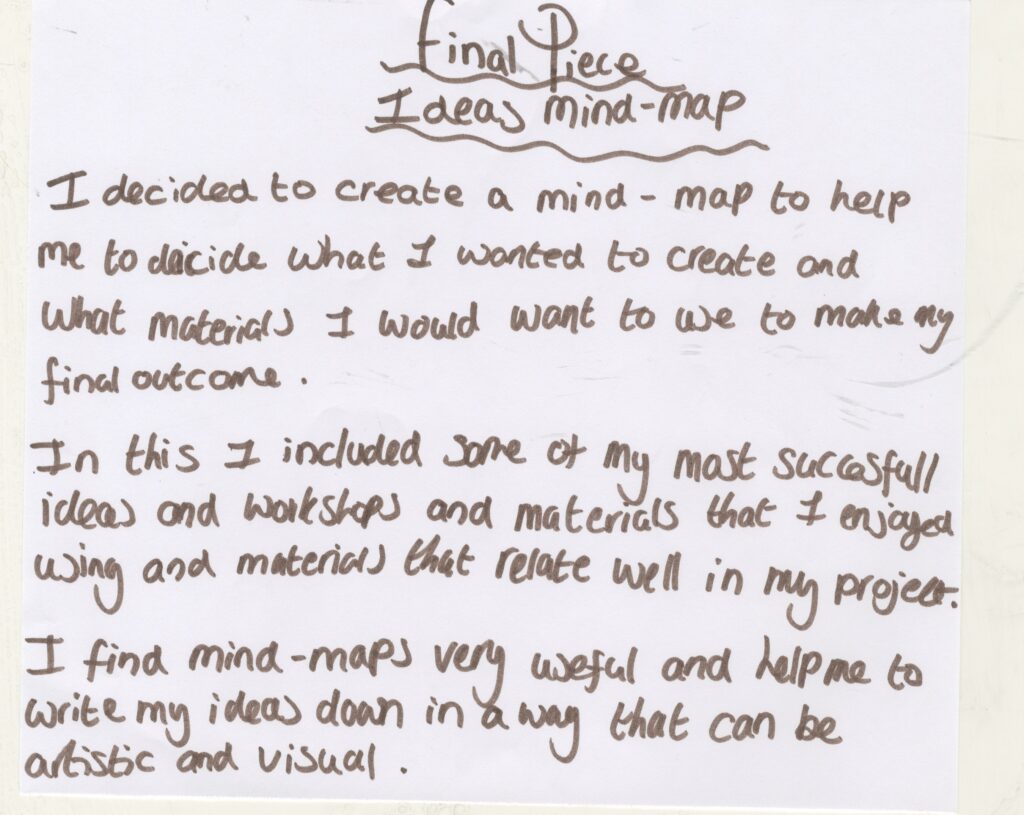 Final Piece
Ideas mind-map
I decided to create a mind - map to help
me to dicide what I wanted to create and
what materials I would want to use to make my
final outcome.
In this I included some of my most succasfull
ideas and workshops and materials that I enjoyed
using and materials that relate well in my project.
I find mind-maps very useful and help me to
write my ideas down in a way that can be
artistic and visual.